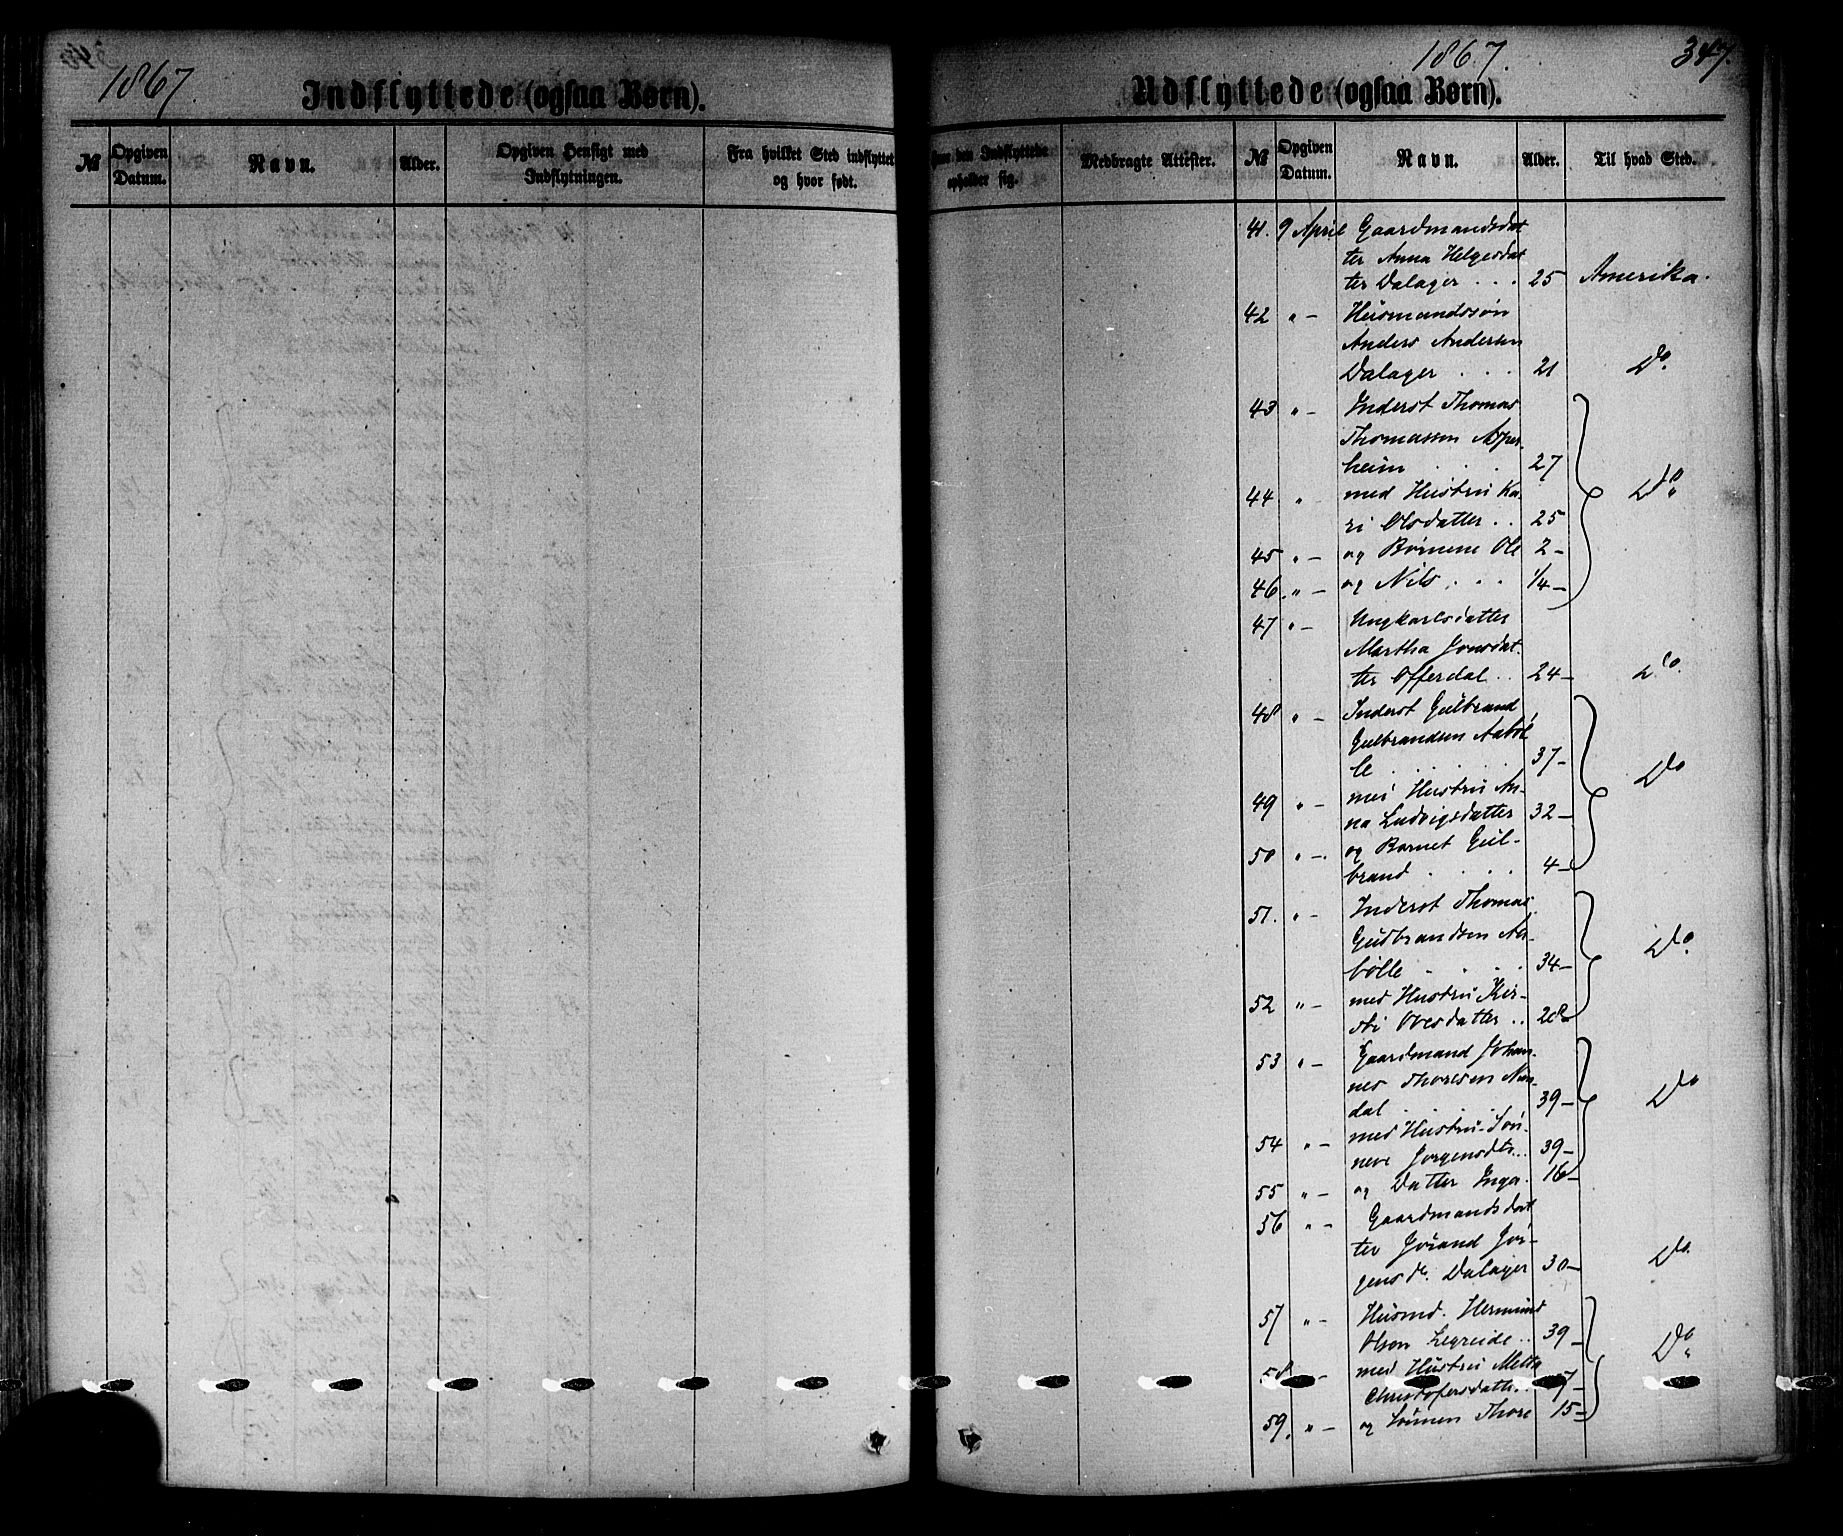 1867.
Indflyttede (ogsaa Børn).
№
Opgiven Datum.
Navn.
Alder.
Opgiven Hensigt med Indflytningen.
Fra hvilket Sted indflyttet og hvor født.
1867.
347.
Udflyttede (ogsaa Børn).
den Indflyttede opholder sig.
Medbragte Attester.
№
Opgiven Datum.
Navn.
Alder.
Til hvad Sted.
41. 9 April Gaardmandsdat
ter Anna Helgesdat
ter Dalager . . . 25 Amerika.
42 " - Husmandssøn
Anders Andersen
Dalager . . . 21 Do.
43 " - Inderst Thomas
Thomassen Asper
heim . . . 27
44 " med Hustru Ka
ri Olsdatter . . 25 Do.
45 " - og Børnene Ole 2 -
46. " - og Nils . . . 1/4 -
47 " - Ungkarlsdatter
Martha Jonsdat
ter Offerdal . . 24 - Do.
48 " - Inderst Gulbrand
Gulbrandsen Aaböl
le . . . . . 37 -
49 " - med Hustru An-
na Ludvigsdatter 32 - Do
50 " - og Barnet Gul-
brand . . . . 4 -
51. " - Inderst Thomas
Gudbrandsen Aa-
bölle . . . . 34 - Do.
52 " - med Hustru Kir-
sti Ovesdatter . . 28 -
53 " - Gaardmand Johan-
nes Thoresen Nun-
dal . . . 39 - Do
54 " - med Hustru Sön-
neve Jorgensdtr. . . 39 -
55 " - og Datter Inga. 16 -
56 " - Gaardmandsdat
ter Jörand Jör-
gensdr. Dalager 30 - Do.
57 " - Husmd. Hermund
Olsen Legreide . . 39 -
58 " - med Hustru Metta Do.
Christofersdatter. . 7 -
59. " - og Sönnen Thore 15 -